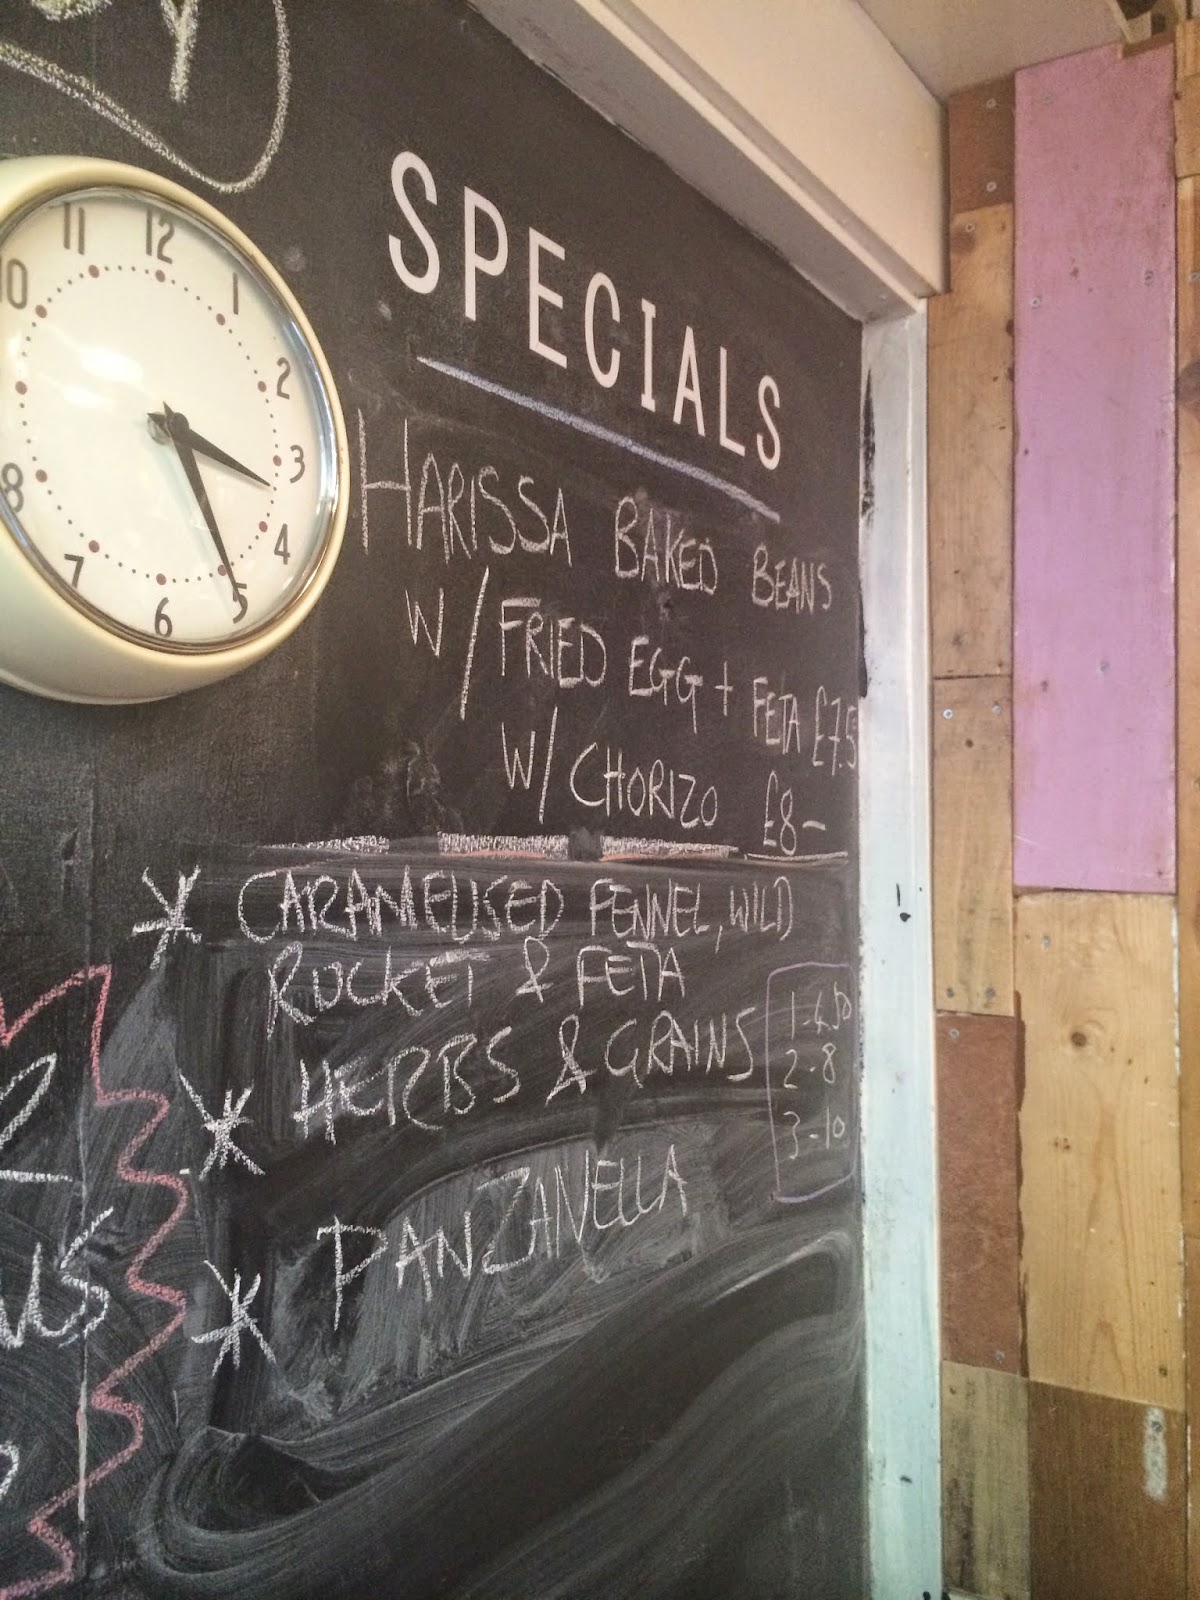 SPECIALS
HARISSA BAKED BEANS
W/ FRIED EGG + FETA £7.5
W/ CHORIZO £8-
* CARAMELISED FENNEL, WILD
ROCKET & FETA
* HERBS & GRAINS
* PANZANELLA
1-4.50
2-8
3-10
11 12 1 2 3 4 5 6 7 8 10